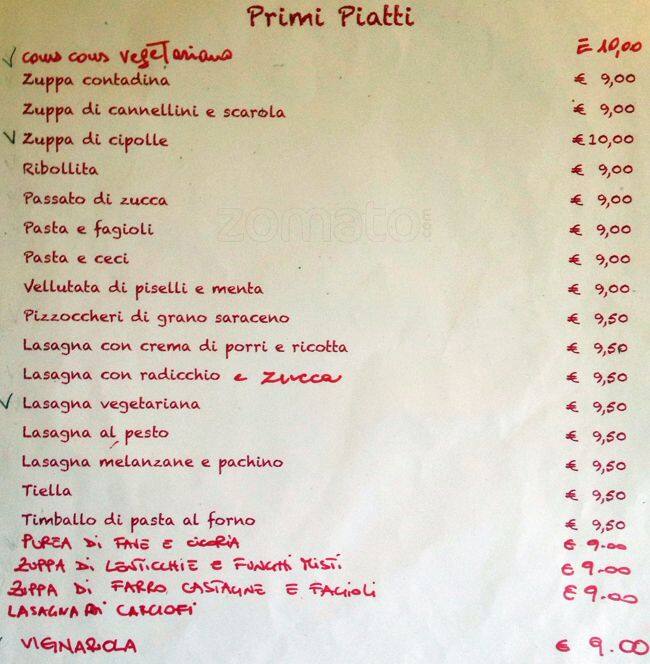 Primi Piatti
cous cous vegetariano € 10,00
Zuppa contadina € 9,00
Zuppa di cannellini e scarola € 9,00
Zuppa di cipolle € 10,00
Ribollita € 9,00
Passato di zucca € 9,00
zomato.com
Pasta e fagioli € 9,00
Pasta e ceci € 9,00
Vellutata di piselli e menta € 9,00
Pizzoccheri di grano saraceno € 9,50
Lasagna con crema di porri e ricotta € 9,50
Lasagna con radicchio e zucca € 9,50
Lasagna vegetariana € 9,50
Lasagna al pesto € 9,50
Lasagna melanzane e pachino € 9,50
Tiella € 9,50
Timballo di pasta al forno € 9,50
PUREA Di FAVE E CICORIA € 9.00
ZUPPA Di LENTICCHIE E FUNGHI MISTI € 9.00
ZUPPA Di FARRO CASTAGNE E FAGIOLI € 9.00
LASAGNA Ai CARCIOFI
VIGNAROLA € 9.00